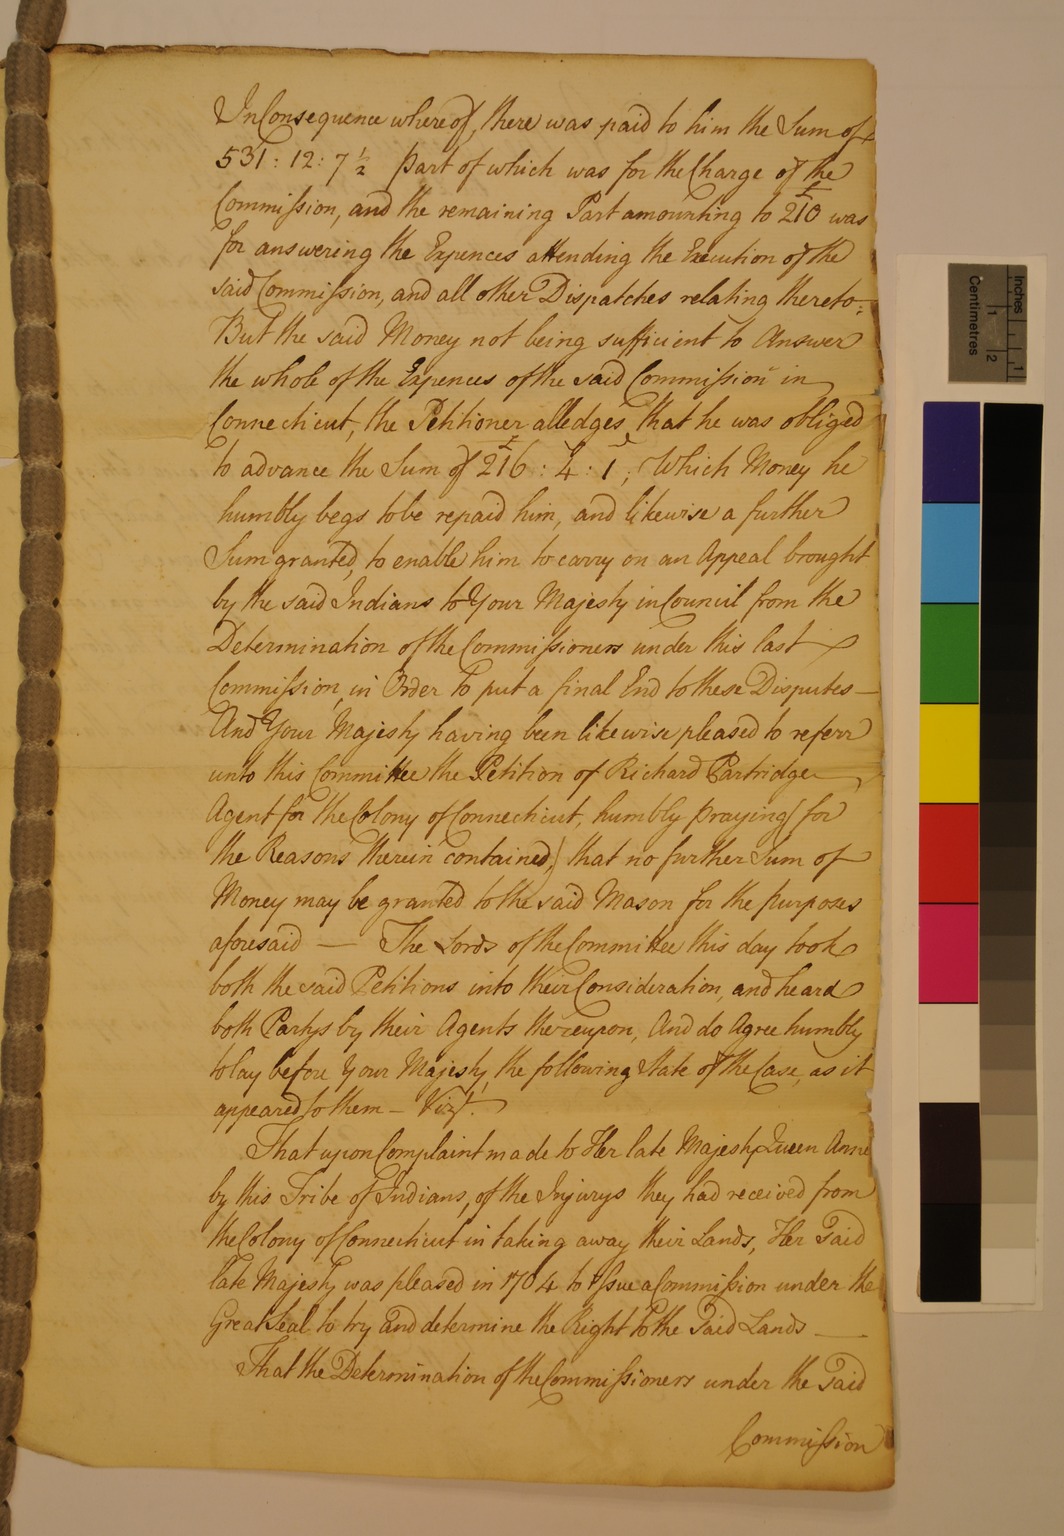 In Consequence whereof, there was paid to him the Sum of
531 : 12 : 7 ½ part of which was for the Charge of the
Commission, and the remaining Part amounting to £210 was
for answering the Expences attending the Execution of the
said Commission, and all other Dispatches relating thereto;
But the said Money not being sufficient to Answer
the whole of the Expences of the said Commission in
Connecticut, the Petitioner alledges, that he was obliged
to advance the Sum of £216 : 4 : 1, Which Money he
humbly begs to be repaid him, and likewise a further
Sum granted, to enable him to carry on an Appeal brought
by the said Indians to Your Majesty in Council from the
Determination of the Commissioners under this last
Commission, in Order to put a final End to these Disputes —
And Your Majesty having been likewise pleased to referr
unto this Committee the Petition of Richard Partridge
Agent for the Colony of Connecticut, humbly praying (for
the Reasons therein contained,) that no further Sum of
Money may be granted to the said Mason for the purposes
aforesaid — The Lords of the Committee this day took
both the said Petitions into their Consideration, and heard
both Partys by their Agents thereupon, And do Agree humbly
to lay before Your Majesty, the following State of the Case, as it
appeared to them — Vizt.
That upon Complaint made to Her late Majesty Queen Anne
by this Tribe of Indians, of the Injurys they had received from
the Colony of Connecticut in taking away their Lands, Her Said
late Majesty was pleased in 1704 to Issue a Commission under the
Great Seal to try and determine the Right to the Said Lands —
That the Determination of the Commissioners under the Said
Commission
Inches
1
Centimetres
1
2